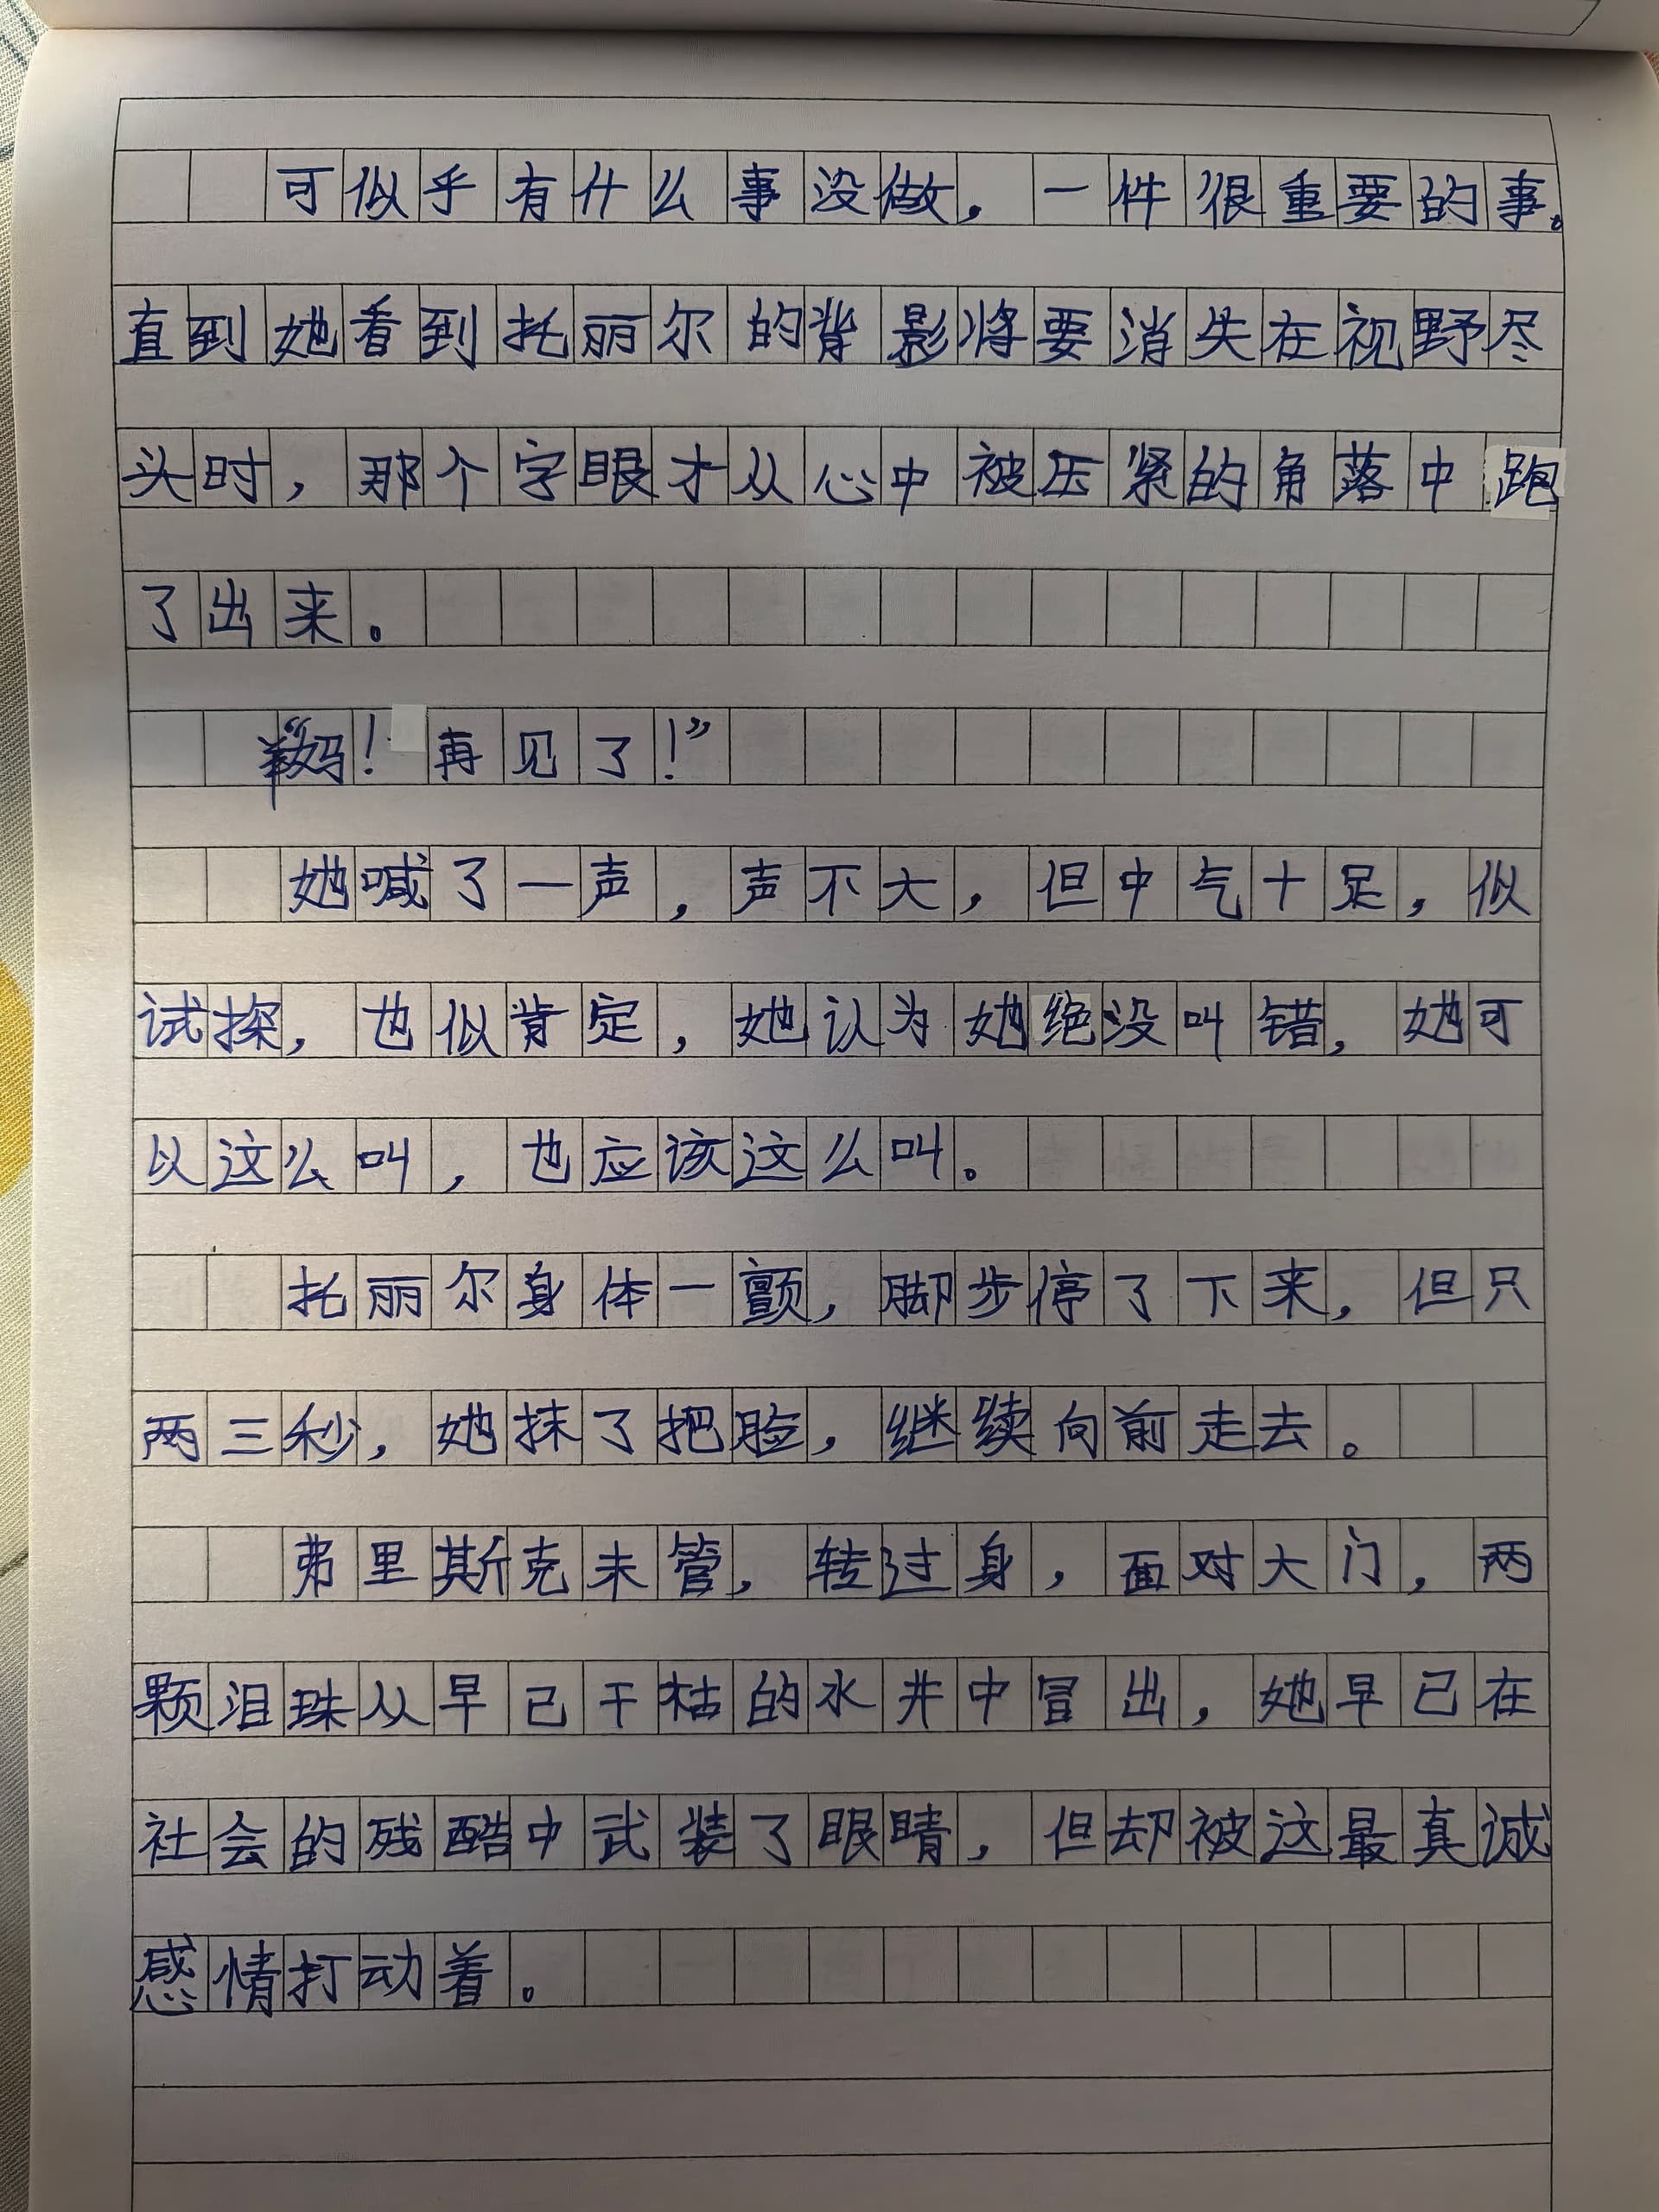 可似乎有什么事没做，一件很重要的事。
直到她看到托丽尔的背影将要消失在视野尽
头时，那个字眼才从心中被压紧的角落中跑
了出来。
“妈！再见了！”
她喊了一声，声不大，但中气十足，似
试探，也似肯定，她认为她绝没叫错，她可
以这么叫，也应该这么叫。
托丽尔身体一颤，脚步停了下来，但只
两三秒，她抹了把脸，继续向前走去。
弗里斯克未管，转过身，面对大门，两
颗泪珠从早已干枯的水井中冒出，她早已在
社会的残酷中武装了眼睛，但却被这最真诚
感情打动着。